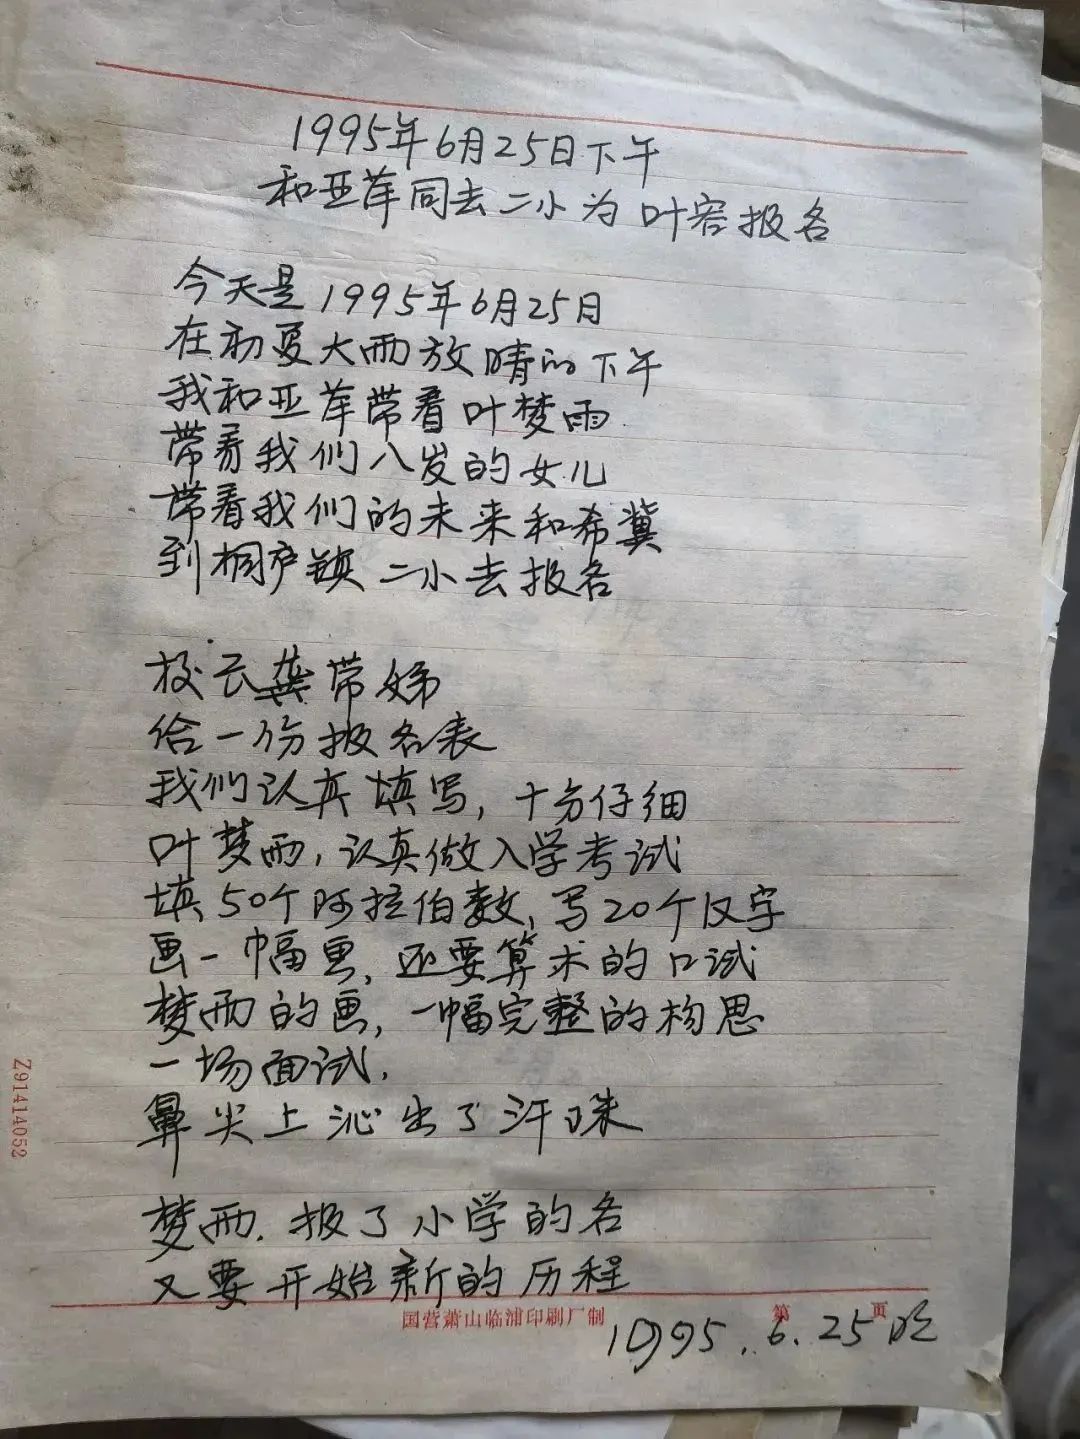 1995年6月25日下午
和亚萍同去二小为叶容报名
今天是1995年6月25日
在初夏大雨放晴的下午
我和亚萍带着叶梦雨
带着我们八岁的女儿
带着我们的未来和希冀
到桐庐镇二小去报名
校长龚带娣
给一份报名表
我们认真填写,十分仔细
叶梦雨,认真做入学考试
填50个阿拉伯数,写20个汉字
画一幅画,还要算术的口试
梦雨的画,一幅完整的构思
一场面试,
鼻尖上沁出了汗珠
梦雨.报了小学的名
又要开始新的历程
国营萧山临浦印刷厂制 第 页
1995.6.25晚
Z91414052